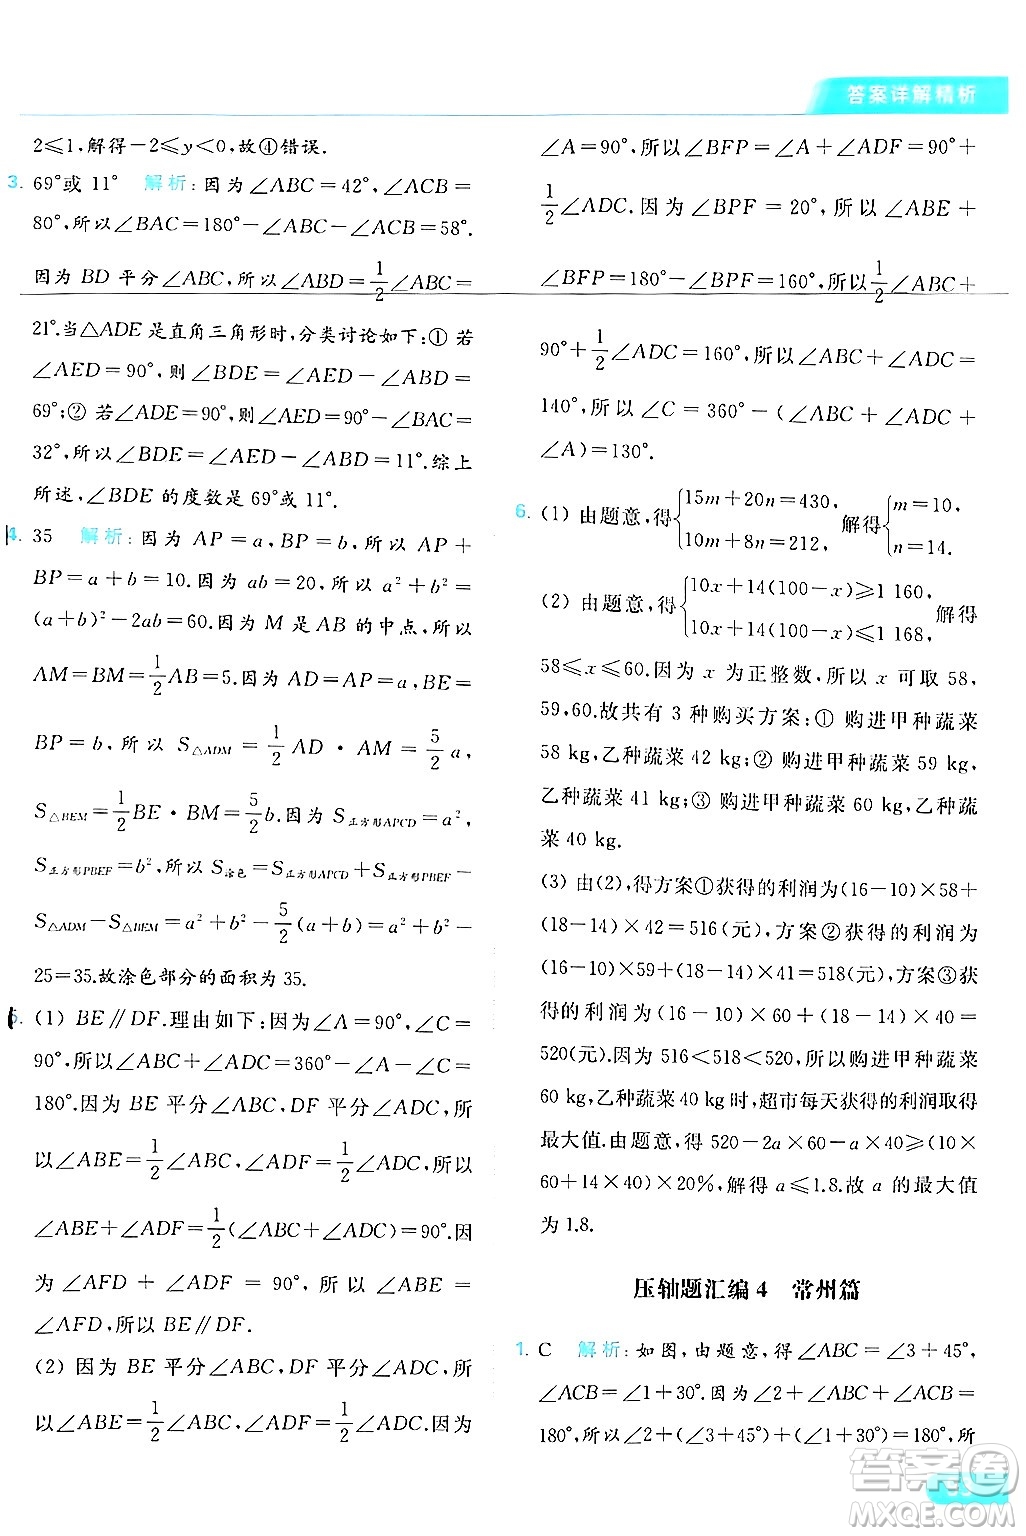 答案详解精析
2≤1,解得-2≤y<0,故④错误.
3. 69°或 11° 解析:因为∠ABC=42°,∠ACB=
80°,所以∠BAC=180°-∠ABC-∠ACB=58°.
因为 BD 平分∠ABC,所以∠ABD=1/2∠ABC=
21°.当△ADE 是直角三角形时,分类讨论如下:① 若
∠AED=90°,则∠BDE=∠AED-∠ABD=
69°;② 若∠ADE=90°,则∠AED=90°-∠BAC=
32°,所以∠BDE=∠AED-∠ABD=11°.综上
所述,∠BDE 的度数是 69°或 11°.
4. 35 解析:因为 AP=a,BP=b,所以 AP+
BP=a+b=10.因为 ab=20,所以 a²+b²=
(a+b)²-2ab=60.因为 M 是 AB 的中点,所以
AM=BM=1/2AB=5.因为 AD=AP=a,BE=
BP=b,所以 S△ADM=1/2 AD·AM=5/2 a,
S△BEM=1/2BE·BM=5/2b.因为 S正方形APCD=a²,
S正方形PBEF=b²,所以 S涂色=S正方形APCD+S正方形PBEF-
S△ADM-S△BEM=a²+b²-5/2(a+b)=a²+b²-
25=35.故涂色部分的面积为 35.
5. (1) BE∥DF.理由如下:因为∠A=90°,∠C=
90°,所以∠ABC+∠ADC=360°-∠A-∠C=
180°.因为 BE 平分∠ABC,DF 平分∠ADC,所
以∠ABE=1/2∠ABC,∠ADF=1/2∠ADC,所以
∠ABE+∠ADF=1/2(∠ABC+∠ADC)=90°.因
为 ∠AFD + ∠ADF = 90°,所以 ∠ABE =
∠AFD,所以 BE∥DF.
(2) 因为 BE 平分∠ABC,DF 平分∠ADC,所
以∠ABE=1/2∠ABC,∠ADF=1/2∠ADC.因为
∠A=90°,所以∠BFP=∠A+∠ADF=90°+
1/2∠ADC.因为∠BPF=20°,所以∠ABE+
∠BFP=180°-∠BPF=160°,所以1/2∠ABC+
90°+1/2∠ADC=160°,所以∠ABC+∠ADC=
140°,所以∠C=360°-(∠ABC+∠ADC+
∠A)=130°.
6. (1) 由题意,得{15m+20n=430, 10m+8n=212, 解得{m=10, n=14.
(2) 由题意,得{10x+14(100-x)≥1 160, 10x+14(100-x)≤1 168, 解得
58≤x≤60.因为 x 为正整数,所以 x 可取 58,
59,60.故共有 3 种购买方案:① 购进甲种蔬菜
58 kg,乙种蔬菜 42 kg;② 购进甲种蔬菜 59 kg,
乙种蔬菜 41 kg;③ 购进甲种蔬菜 60 kg,乙种蔬
菜 40 kg.
(3) 由(2),得方案①获得的利润为(16-10)×58+
(18-14)×42=516(元),方案②获得的利润为
(16-10)×59+(18-14)×41=518(元),方案③获
得的利润为(16-10)×60+(18-14)×40=
520(元).因为 516<518<520,所以购进甲种蔬菜
60 kg,乙种蔬菜 40 kg时,超市每天获得的利润取得
最大值.由题意,得 520-2a×60-a×40≥(10×
60+14×40)×20%,解得 a≤1.8.故 a 的最大值
为 1.8.
压轴题汇编 4 常州篇
1. C 解析:如图,由题意,得∠ABC=∠3+45°,
∠ACB=∠1+30°.因为∠2+∠ABC+∠ACB=
180°,所以∠2+(∠3+45°)+(∠1+30°)=180°,所
答案圈
MXQE.COM